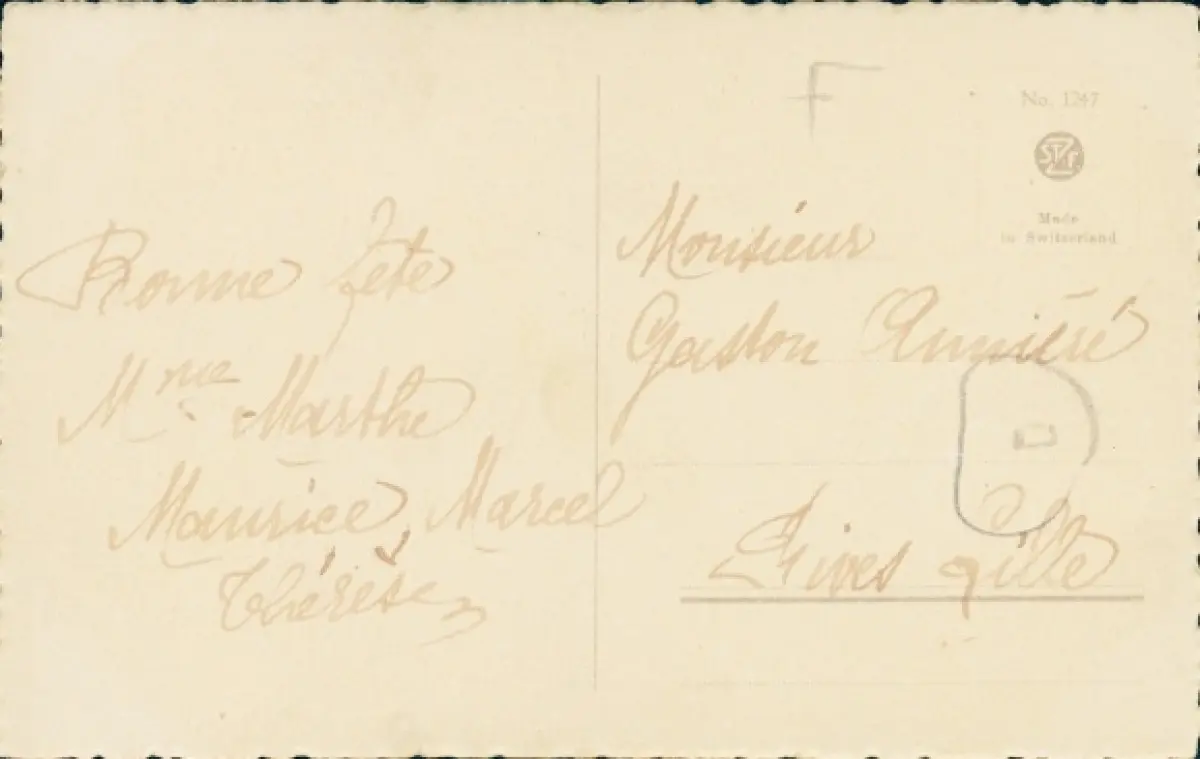 Bonne fete
Mme Marthe
Maurice, Marcel
Thérèse
F
No. 1247
Made
in Switzerland
Monsieur
Gaston
Fives Lille